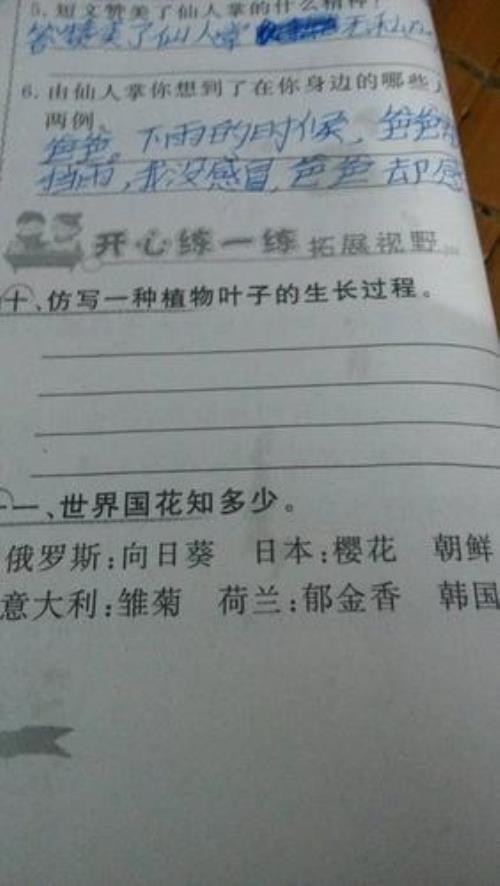 5.短文赞美了仙人掌的什么精神?
答:赞美了仙人掌无私
6.由仙人掌你想到了在你身边的哪些
两例。
爸爸。下雨的时候,爸爸
挡雨,我没感冒,爸爸却感
开心练一练 拓展视野
十、仿写一种植物叶子的生长过程。
一、世界国花知多少。
俄罗斯:向日葵 日本:樱花 朝鲜
意大利:雏菊 荷兰:郁金香 韩国